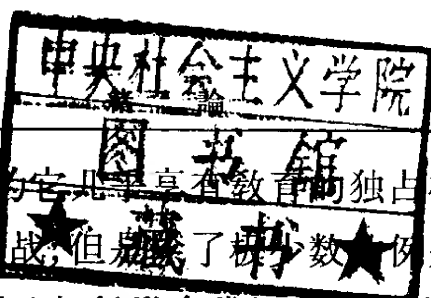 中央社会主义学院
緒論
图书馆
为它几乎享有教育的独占
藏书
战，但是除了极少数例